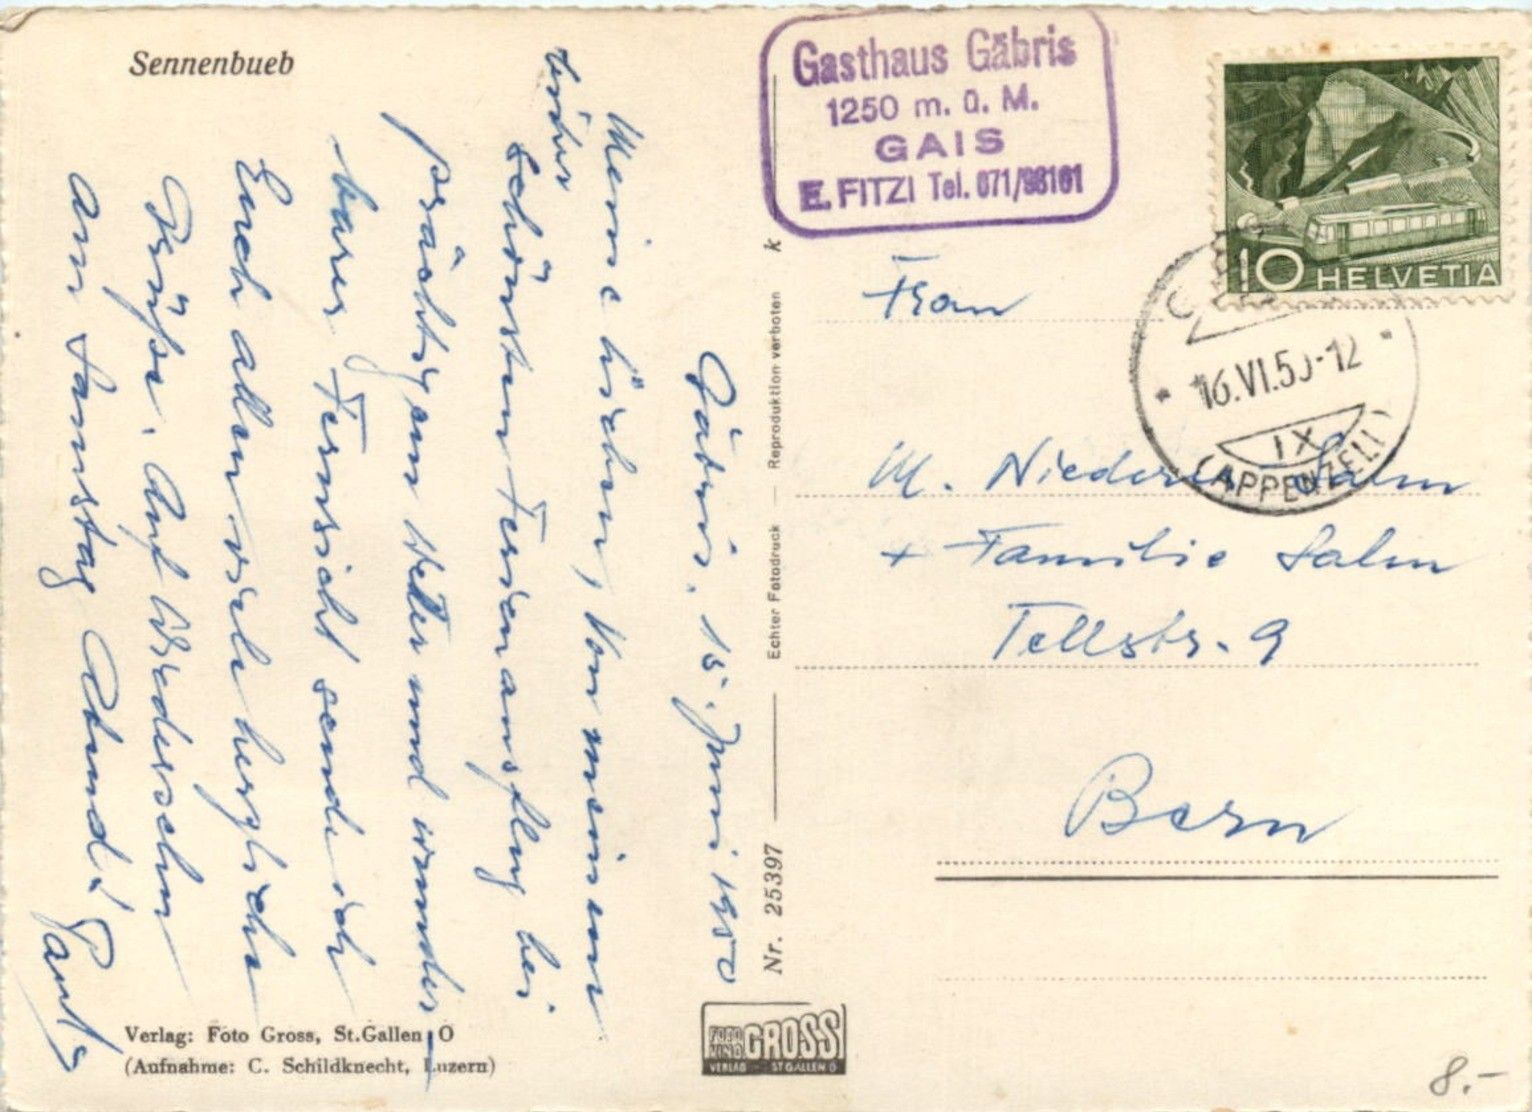 Sennenbueb
Gäbris, 15. Juni 1950
Meine Lieben, Von meinem
bisher
schönsten Ferienausflug bei
prächtigem Wetter und wunder
-barer Fernsicht sende ich
Euch allen viele herzliche
Grüsse. Auf Wiedersehn
am Samstag Abend!
Verlag: Foto Gross, St.Gallen O
(Aufnahme: C. Schildknecht, Luzern)
Nr. 25397
Echter Fotodruck — Reproduktion verboten
k
FOTO GROSS
VERLAG - ST GALLEN O
Gasthaus Gäbris
1250 m. ü. M.
GAIS
E. FITZI Tel. 071/93161
10 HELVETIA
16.VI.50-12
IX
(APPENZELL)
Frau
M. Niederer Salm
+ Familie Salm
Tellstr. 9
Bern
8.-